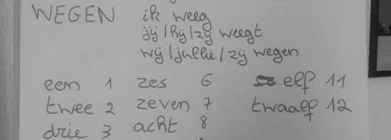 WEGEN ik weeg
jij/hij/zij weegt
wij/jullie/zij wegen
een 1 zes 6 elf 11
twee 2 zeven 7 twaalf 12
drie 3 acht 8